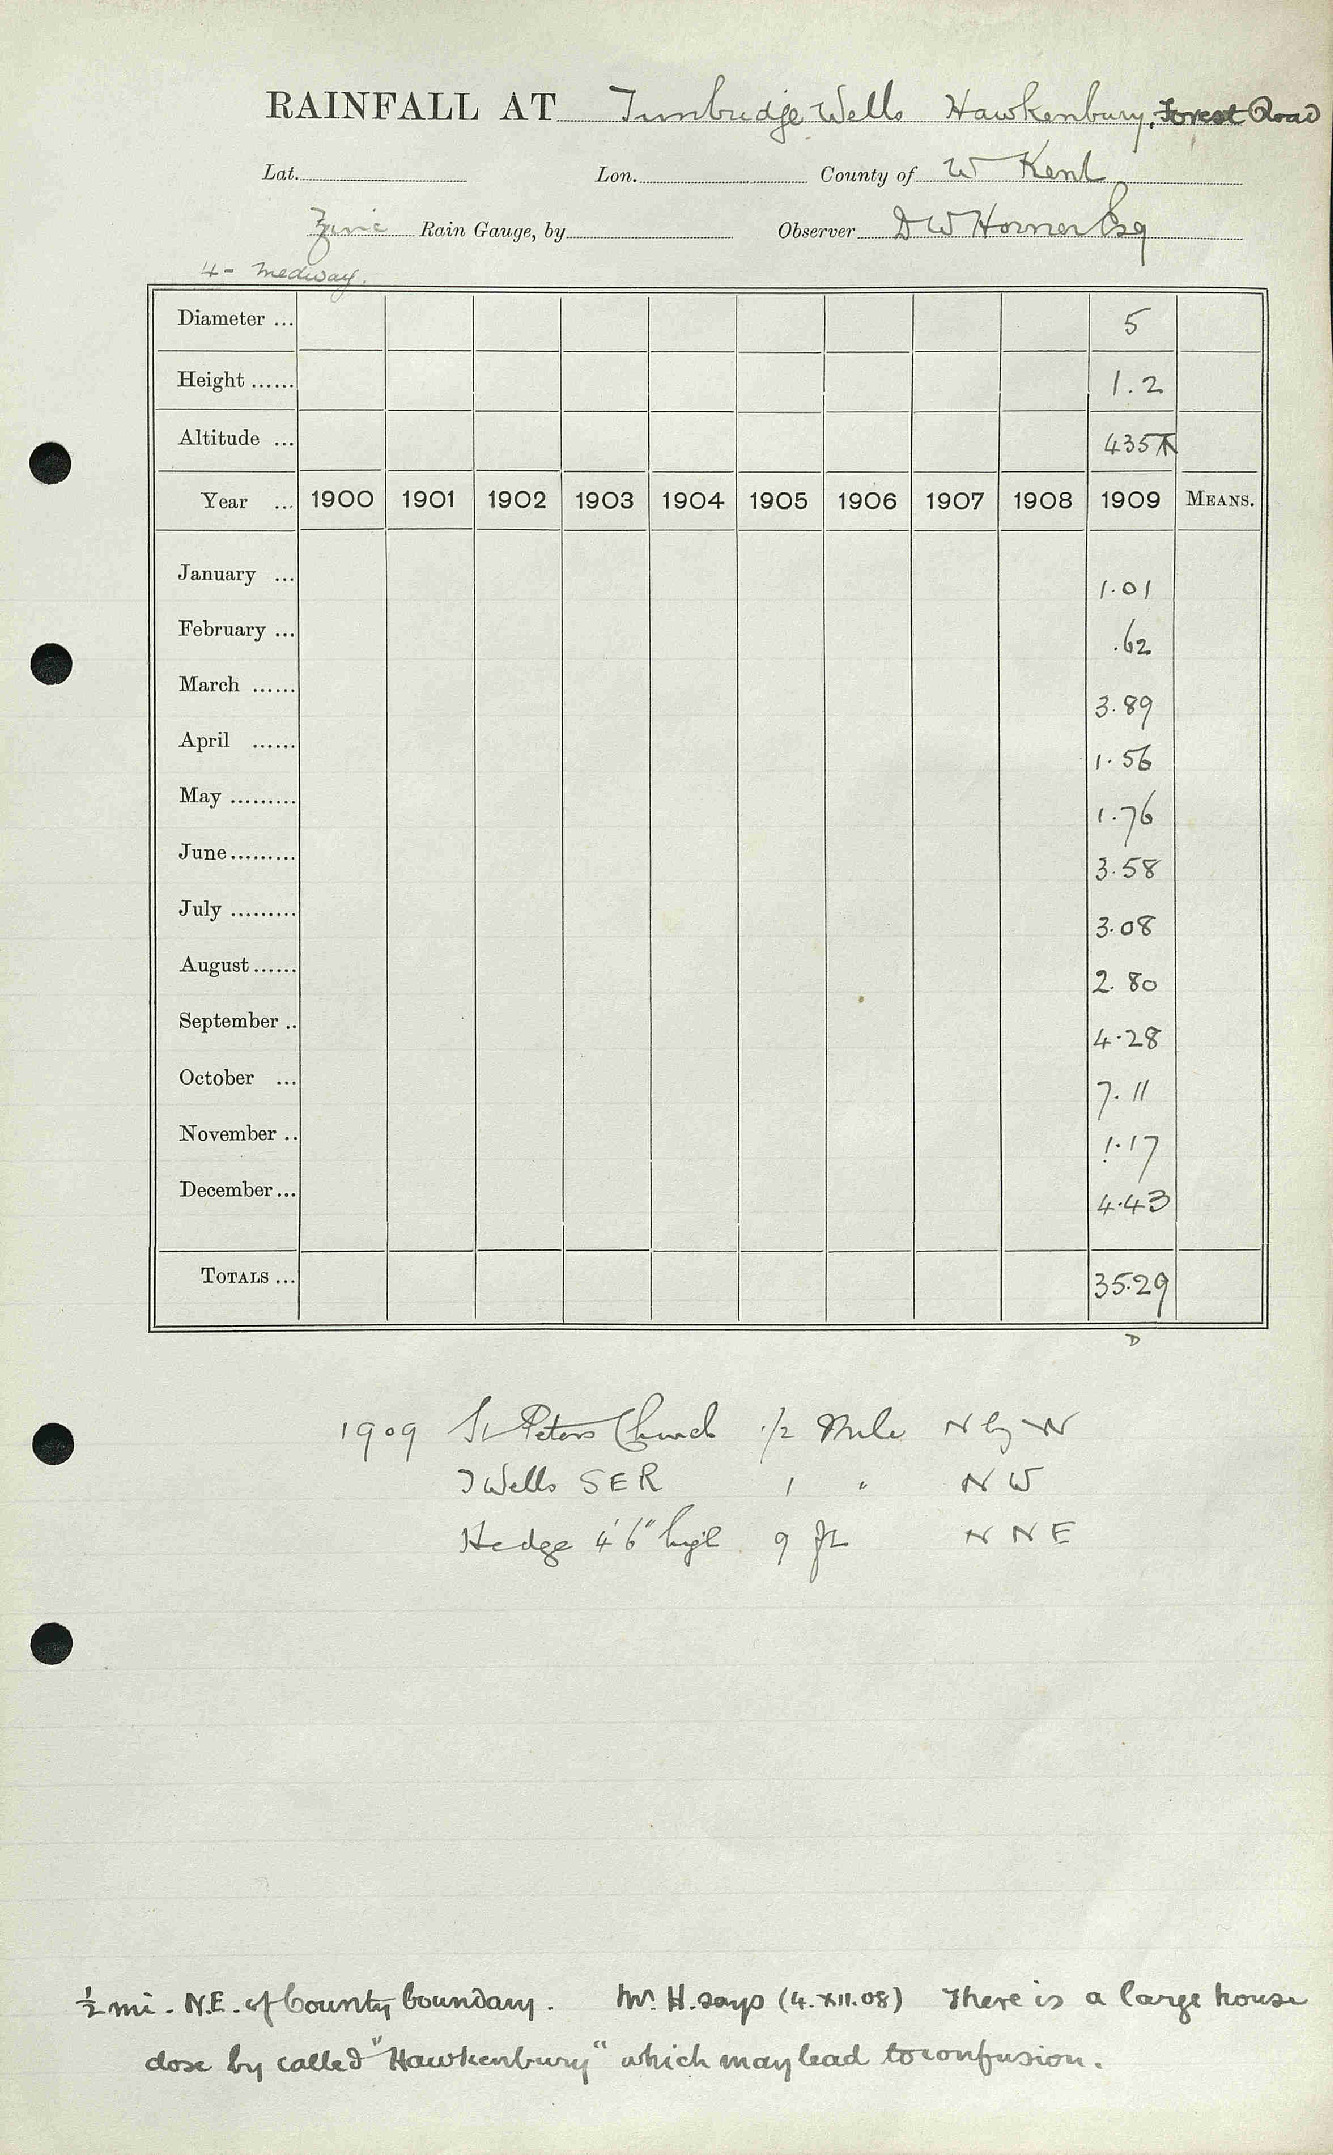 RAINFALL AT Tunbridge Wells Hawkenbury, Forest Road
Lat. Lon. County of W Kent
Zinc Rain Gauge, by Observer D W Horner Esq
4 - Medway.
Diameter ... 5
Height ...... 1.2
Altitude ... 435
Year ... 1900 1901 1902 1903 1904 1905 1906 1907 1908 1909 MEANS.
January ... 1.01
February ... .62
March ...... 3.89
April ...... 1.56
May ......... 1.76
June......... 3.58
July ......... 3.08
August...... 2.80
September .. 4.28
October ... 7.11
November .. 1.17
December... 4.43
TOTALS ... 35.29
D
1909 St Peters Church 1/2 Mile N by W
T Wells SER 1 " N W
Hedge 4'6" high 9 ft N N E
½ mi. N.E. of County boundary. Mr. H. says (4.XII.08) There is a large house
close by called "Hawkenbury" which may lead to confusion.